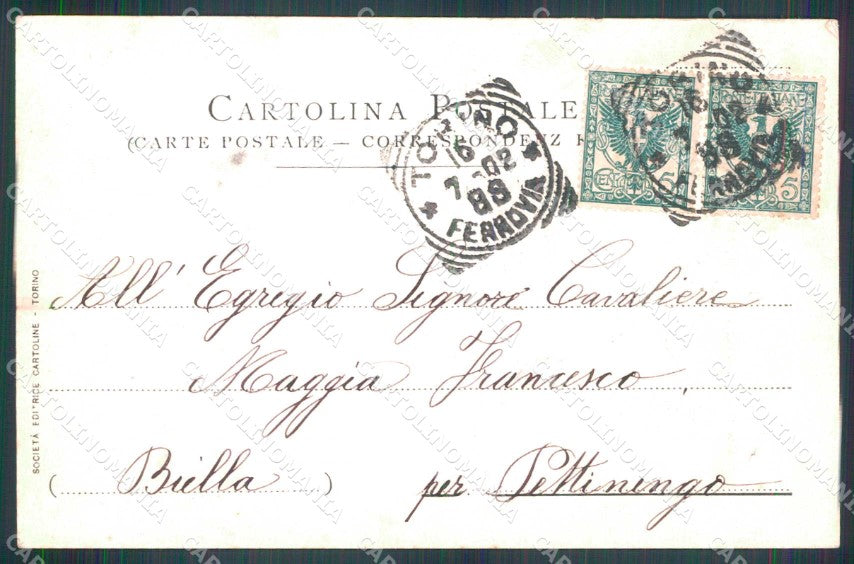 CARTOLINA POSTALE
(CARTE POSTALE — CORRESPONDENZ K
TORINO
16
7-02
88
FERROVIA
5
5
All' Egregio Signore Cavaliere
Maggia Francesco
(Biella) per Pettinengo
SOCIETÀ EDITRICE CARTOLINE - TORINO
CARTOLINOMANIA